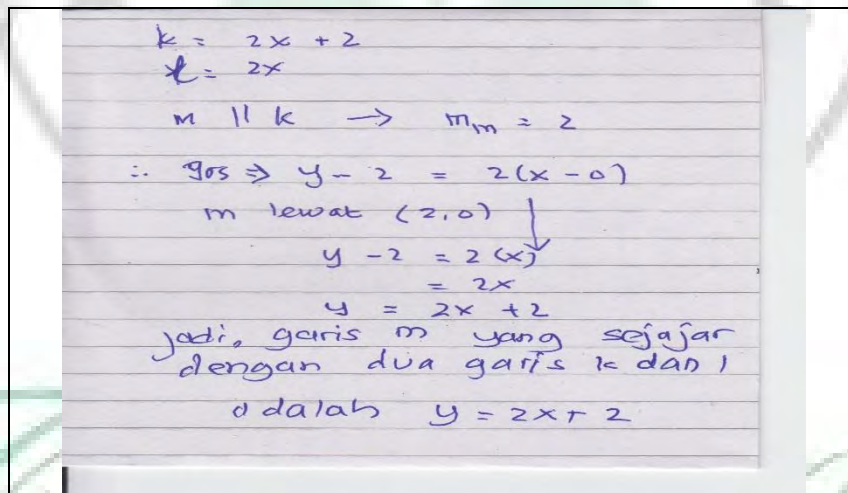 k = 2x + 2
l = 2x
m || k → mm = 2
∴ gos ⇒ y - 2 = 2(x - 0)
m lewat (2,0)
y - 2 = 2(x)
= 2x
y = 2x + 2
jadi, garis m yang sejajar
dengan dua garis k dan l
adalah y = 2x + 2